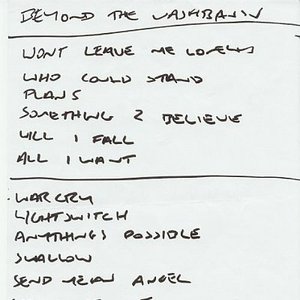 BEYOND THE WASHBASIN
WONT LEAVE ME LONELY
WHO COULD STAND
PLANS
SOMETHING 2 BELIEVE
WILL I FALL
ALL I WANT
WARCRY
LIGHTSWITCH
ANYTHINGS POSSIBLE
SWALLOW
SEND ME AN ANGEL